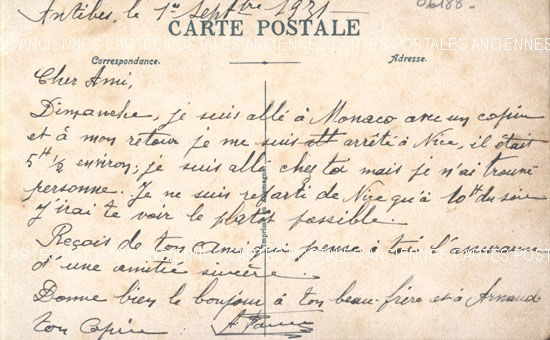 Antibes, le 1er Septbre 1921
06188
CARTE POSTALE
CARTES POSTALES ANCIENNES
Correspondance.
Adresse.
Cher Ami,
Dimanche, je suis allé à Monaco avec un copin
et à mon retour je me suis arrêté à Nice, il était
5H ½ environ; je suis allé chez toi mais je n'ai trouvé
personne. Je ne suis reparti de Nice qu'à 10H du soir
J'irai te voir le plutot possible.
Reçois de ton ami qui pense à toi l'assurance
d'une amitié sincère.
Donne bien le bonjour à ton beau-frère et à Arnaud
ton Copin